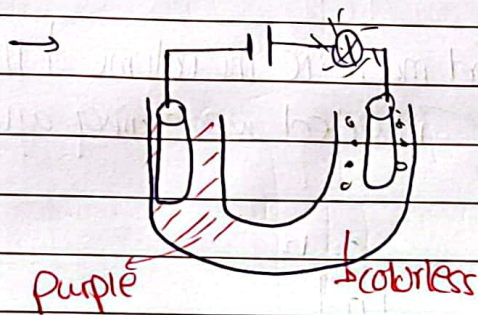 purple
colorless